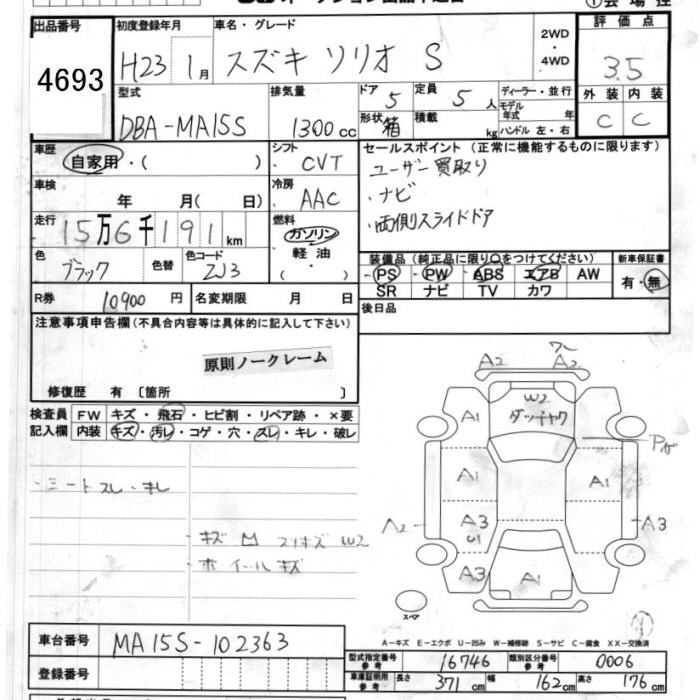 出品番号
4693
初度登録年月
H23 1月
車名・グレード
スズキ ソリオ S
2WD
・
4WD
評価点
3.5
外装 内装
C C
型式
DBA-MA15S
排気量
1300cc
ドア
5
形状
箱
定員
5 人
積載
kg
ディーラー・並行
モデル年式 年
ハンドル 左・右
車歴
自家用・( )
シフト
CVT
セールスポイント (正常に機能するものに限ります)
ユーザー買取り
・ナビ
・両側スライドドア
車検
年 月( 日)
冷房
AAC
走行
15万6千191km
燃料
ガソリン
軽油
・( )
色
ブラック
色替
色コード
ZJ3
装備品 (純正品に限り○をつけてください)
・PS・PW・ABS・エアB・AW
SR・ナビ・TV・カワ
新車保証書
有・無
R券
10900円
名変期限 月 日
後日品
注意事項申告欄(不具合内容等は具体的に記入して下さい)
原則ノークレーム
修復歴 有 〔箇所 〕
検査員
記入欄
FW キズ・飛石・ヒビ割・リペア跡・×要
内装 キズ・汚レ・コゲ・穴・スレ・キレ・破レ
・シートスレ・キレ
・キズ M スリキズ W2
・ホイールキズ
A2
A2
W2
A1
A1
A1
A1
A2
A3
U1
A3
A3
A1
スペア
A-キズ E-エクボ U-凹み W-補修跡 S-サビ C-腐食 XX-交換済
車台番号
MA15S-102363
登録番号
型式指定番号
参考
16746
類別区分番号
参考
0006
車庫証明用
参考
長さ 371cm
幅 162cm
高さ 176cm